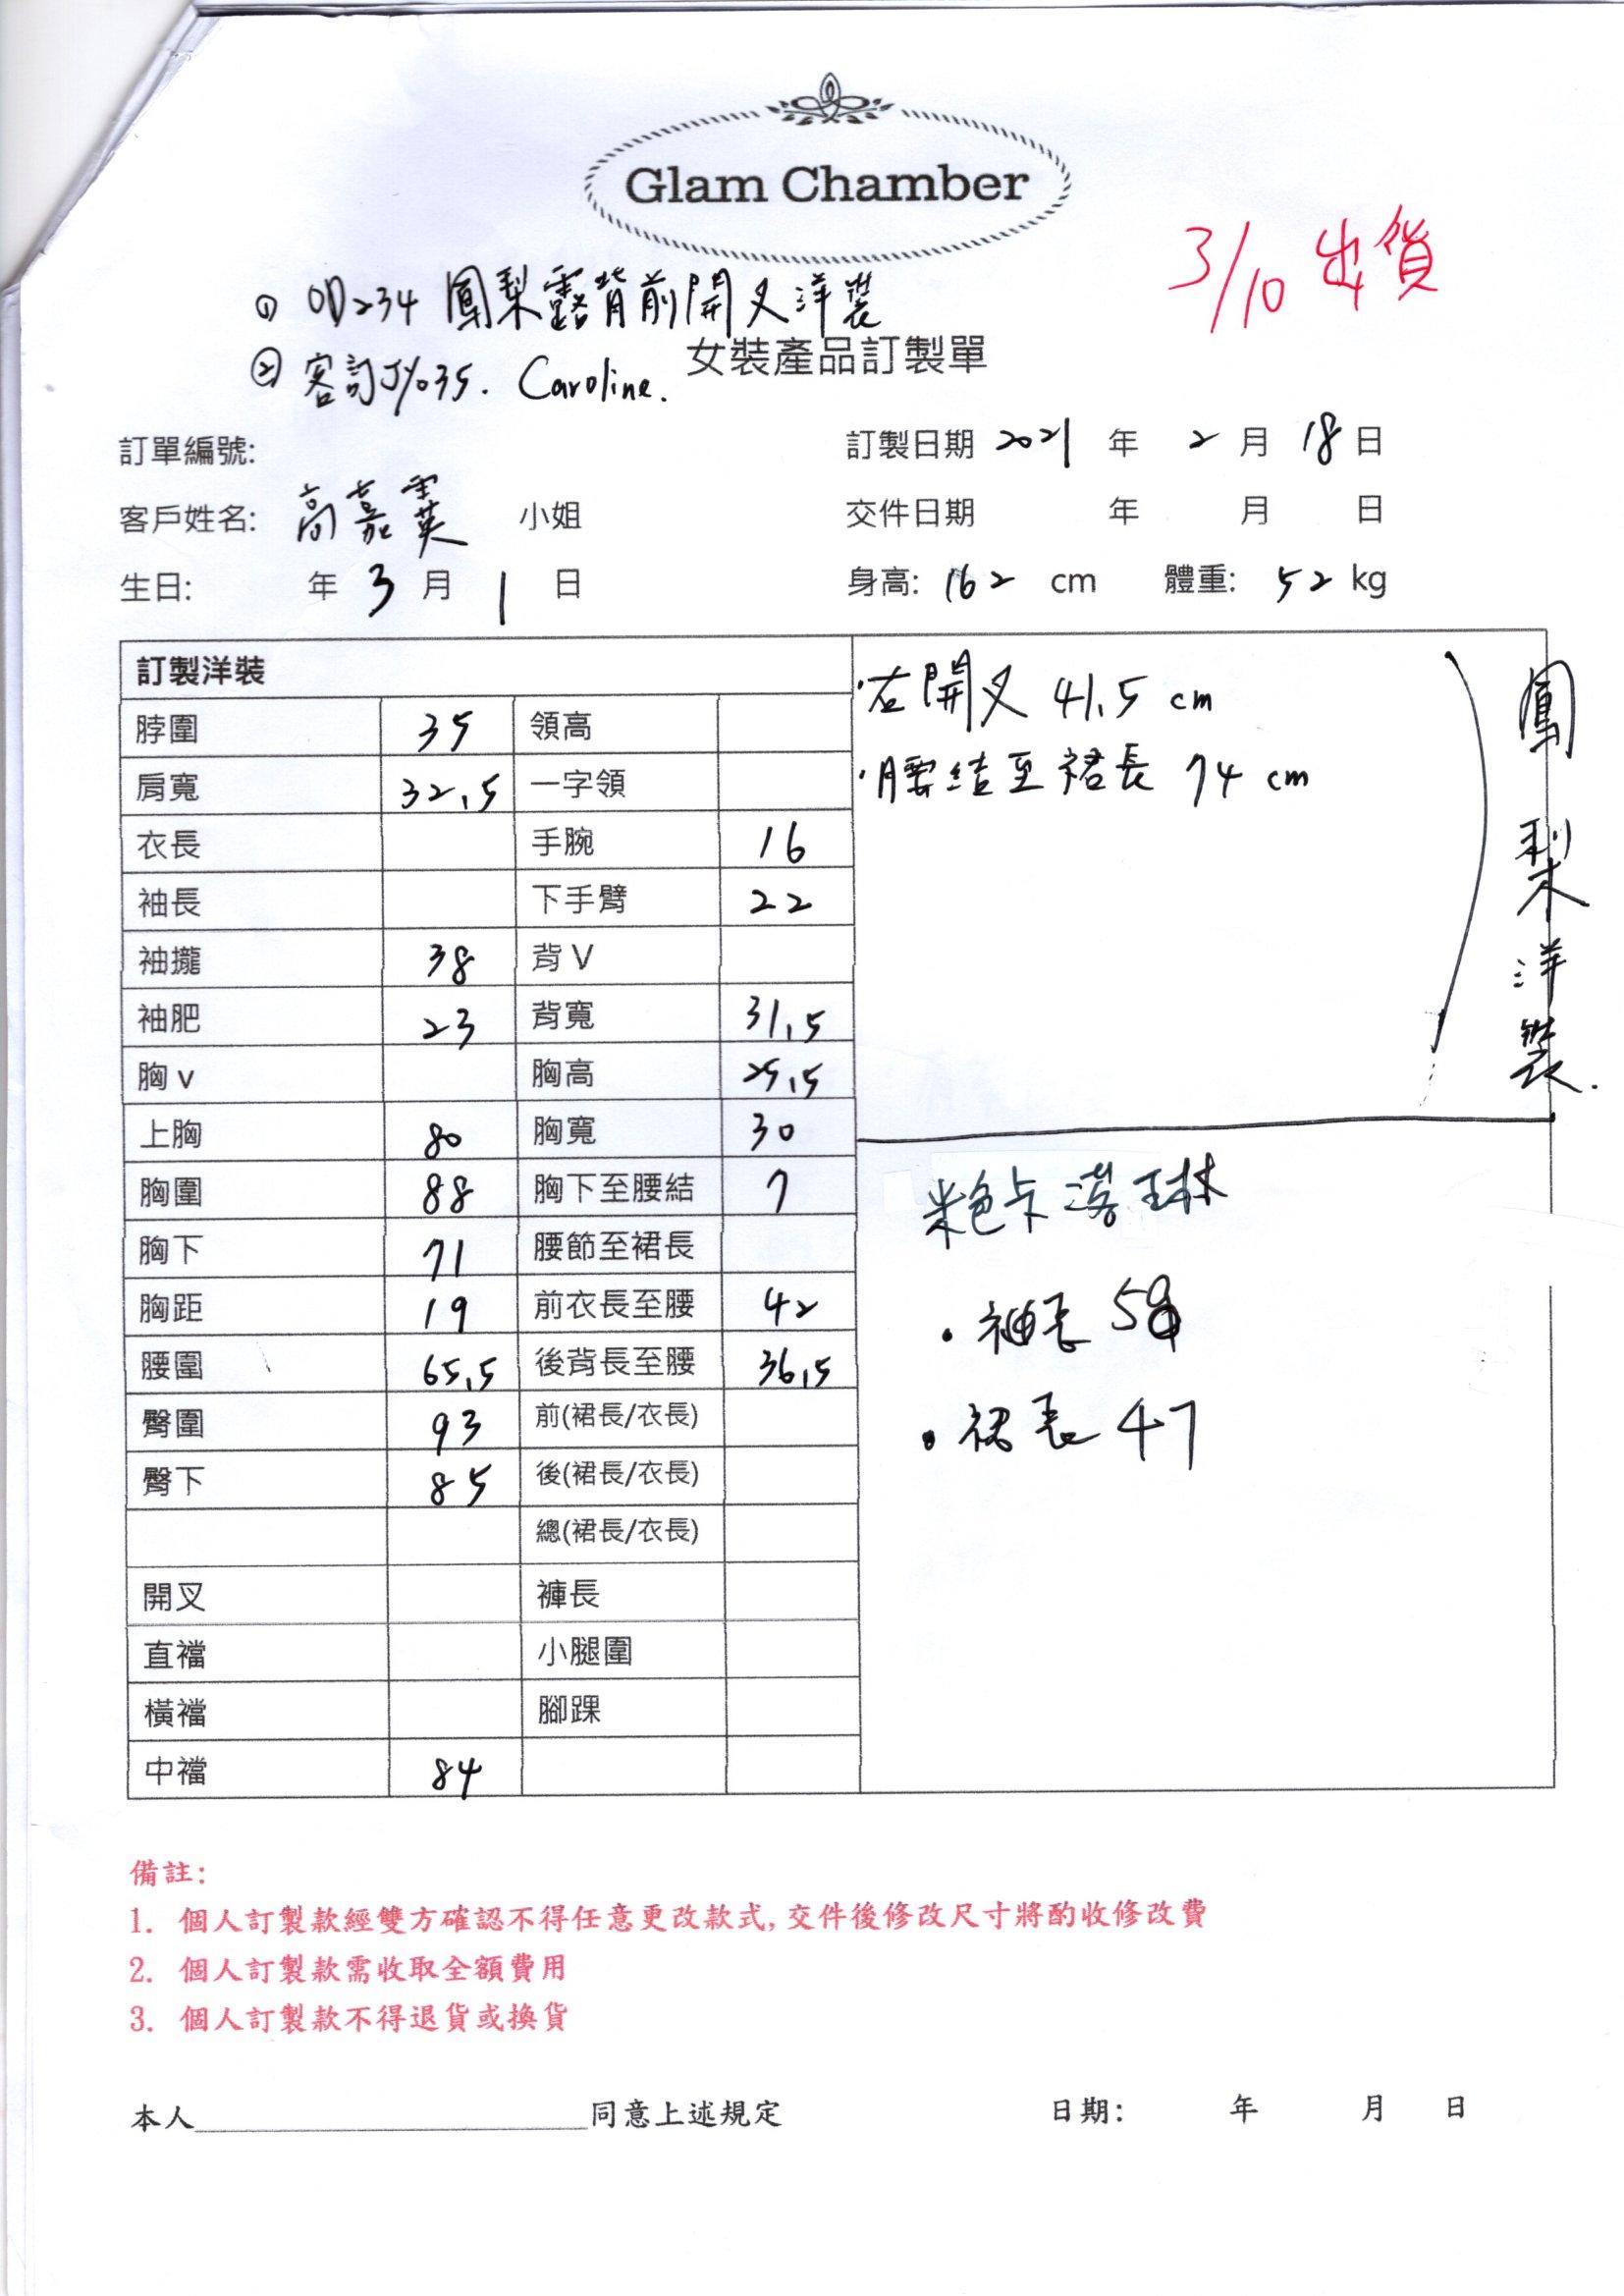 Glam Chamber
3/10 出貨
① OD234 鳳梨露背前開叉洋裝
② 客訂J1/035. Caroline.
女裝產品訂製單
訂單編號: 訂製日期 2021 年 2 月 18 日
客戶姓名: 高嘉霙 小姐 交件日期 年 月 日
生日: 年 3 月 1 日 身高: 162 cm 體重: 52 kg
訂製洋裝
脖圍 35 領高
肩寬 32.5 一字領
衣長 手腕 16
袖長 下手臂 22
袖攏 38 背 V
袖肥 23 背寬 31.5
胸 v 胸高 25.5
上胸 80 胸寬 30
胸圍 88 胸下至腰結 7
胸下 71 腰節至裙長
胸距 19 前衣長至腰 42
腰圍 65.5 後背長至腰 36.5
臀圍 93 前(裙長/衣長)
臀下 85 後(裙長/衣長)
總(裙長/衣長)
開叉 褲長
直襠 小腿圍
橫襠 腳踝
中襠 84
·右開叉 41.5 cm
·腰結至裙長 74 cm
鳳梨洋裝.
米色卡洛琳
·袖長 59
·裙長 47
備註:
1. 個人訂製款經雙方確認不得任意更改款式,交件後修改尺寸將酌收修改費
2. 個人訂製款需收取全額費用
3. 個人訂製款不得退貨或換貨
本人 同意上述規定 日期: 年 月 日